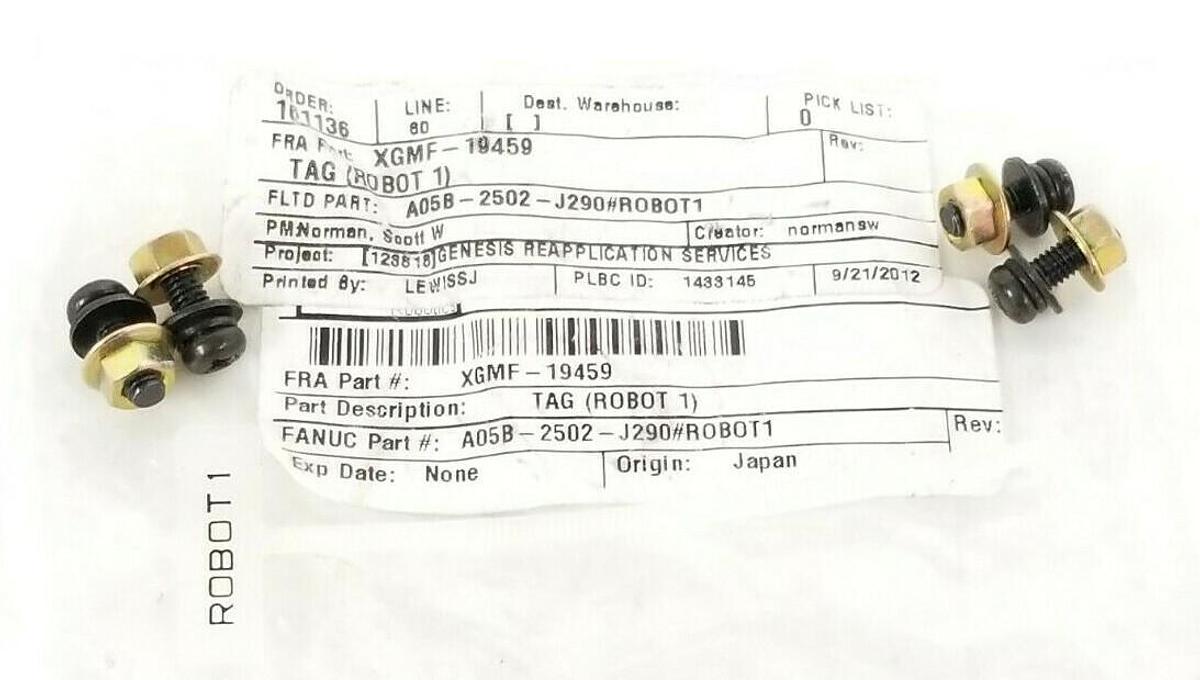 ORDER: LINE: Dest. Warehouse: PICK LIST:
101136 80 [ ] 0
FRA Part: XGMF-19459 Rev:
TAG (ROBOT 1)
FLTD PART: A05B-2502-J290#ROBOT1
PM:Norman, Scott W Creator: normansw
Project: [123818]GENESIS REAPPLICATION SERVICES
Printed By: LEWISSJ PLBC ID: 1433145 9/21/2012
FRA Part #: XGMF-19459
Part Description: TAG (ROBOT 1)
FANUC Part #: A05B-2502-J290#ROBOT1 Rev:
Exp Date: None Origin: Japan
ROBOT1